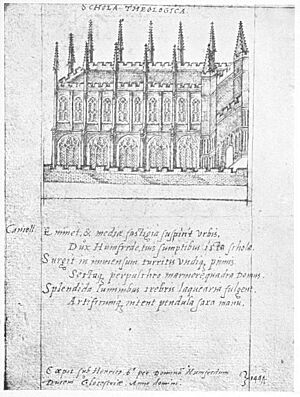 SCHOLA THEOLOGICA.
Cancell. Eminet, & mediæ fastigia suspicit vrbis,
Dux Humfrede, tuis sumptibus ista schola.
Surgit in immensum turritis vndiq, pinnis
Sectaq, perpulchro marmore quadra domus.
Splendida luminibus crebris laquearia fulgent,
Artificumq, nitent pendula saxa manu.
Cæpit sub Henrico .6º per Dominũ Humfredum
Ducem Glocestriæ Anno domini.